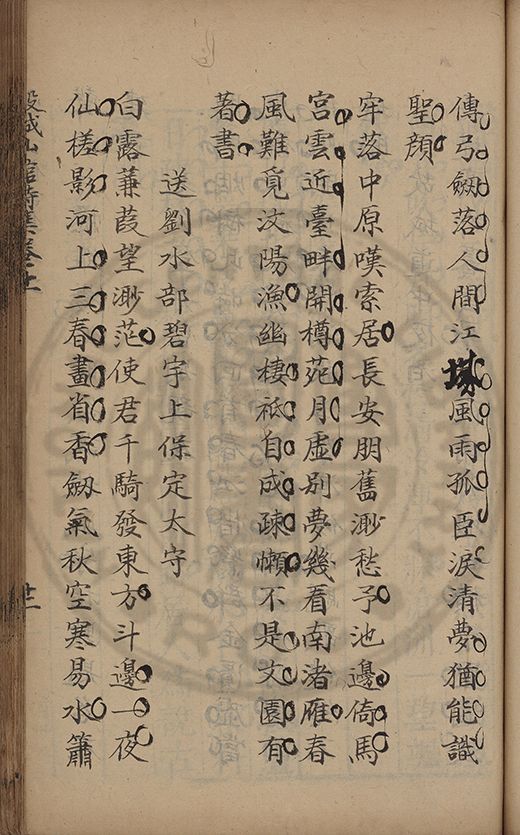 傳弓劔落人間江城風雨孤臣淚清夢猶能識
聖顔
牢落中原嘆索居長安朋舊渺愁予池邊倚馬
宮雲近臺畔開樽苑月虛別夢幾看南渚雁春
風難覓汶陽漁幽棲祇自成疎懶不是文園有
著書
送劉水部碧宇上保定太守
白露蒹葭望渺茫使君千騎發東方斗邊一夜
仙槎影河上三春畫省香劔氣秋空寒易水簫
穀城山館詩集卷十
廿二